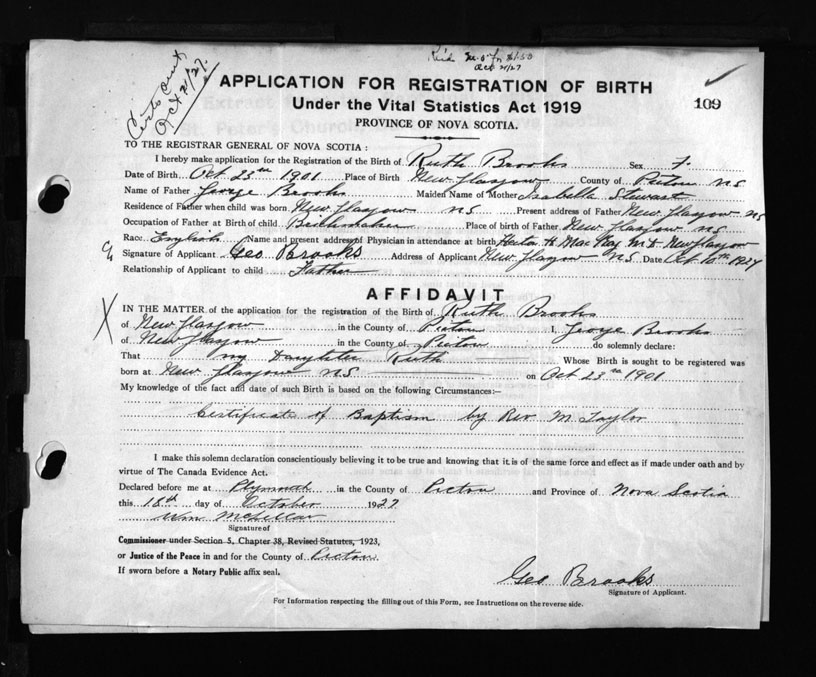 Rec'd M.O. for $1.50
Oct 21/27
Oct 21/27.
APPLICATION FOR REGISTRATION OF BIRTH
109
Under the Vital Statistics Act 1919
PROVINCE OF NOVA SCOTIA.
TO THE REGISTRAR GENERAL OF NOVA SCOTIA :
I hereby make application for the Registration of the Birth of Ruth Brooks Sex F.
Date of Birth Oct 23rd 1901 Place of Birth New Glasgow County of Pictou N S
Name of Father George Brooks Maiden Name of Mother Isabella Stewart
Residence of Father when child was born New Glasgow N S Present address of Father New Glasgow N S
Occupation of Father at Birth of child Place of birth of Father New Glasgow N S
Race English Name and present address of Physician in attendance at birth H Mac Kay M D New Glasgow
Signature of Applicant Geo Brooks Address of Applicant New Glasgow N S Date Oct 10th 1927
Relationship of Applicant to child Father
AFFIDAVIT
X IN THE MATTER of the application for the registration of the Birth of Ruth Brooks
of New Glasgow in the County of Pictou I, George Brooks
of New Glasgow in the County of Pictou do solemnly declare:
That my Daughter Ruth Whose Birth is sought to be registered was
born at New Glasgow N S on Oct 23rd 1901
My knowledge of the fact and date of such Birth is based on the following Circumstances:—
Certificate of Baptism by Rev M Taylor
I make this solemn declaration conscientiously believing it to be true and knowing that it is of the same force and effect as if made under oath and by
virtue of The Canada Evidence Act.
Declared before me at Plymouth in the County of Pictou and Province of Nova Scotia
this 18th day of October 1927
Wm McLellan
Signature of
Commissioner under Section 5, Chapter 38, Revised Statutes, 1923,
or Justice of the Peace in and for the County of Pictou
If sworn before a Notary Public affix seal.
Geo Brooks
Signature of Applicant.
For Information respecting the filling out of this Form, see Instructions on the reverse side.